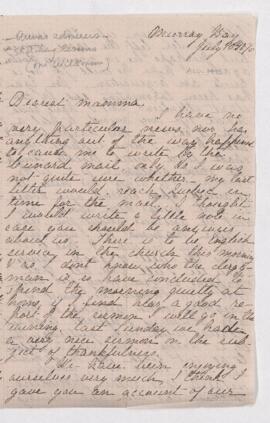 Murray Bay
July
Dearest Mamma
I have no
very particular news nor has
anything out of the way happened
to cause me to write by the
mail only as I was
not quite sure whether my last
letter would reach Quebec in
time for the mail, I thought
I would write a little note in
case you should be anxious
about us. There is to be English
service in the church this morning
but I don't know who the clergy-
man is so have concluded to
spend the morning quietly at
home, if I find a good re-
port of the sermon I will go in the
evening, last Sunday we had
a very nice sermon on the sub-
ject of thankfulness.
We have been enjoying
ourselves very much, I think I
gave you an account of our